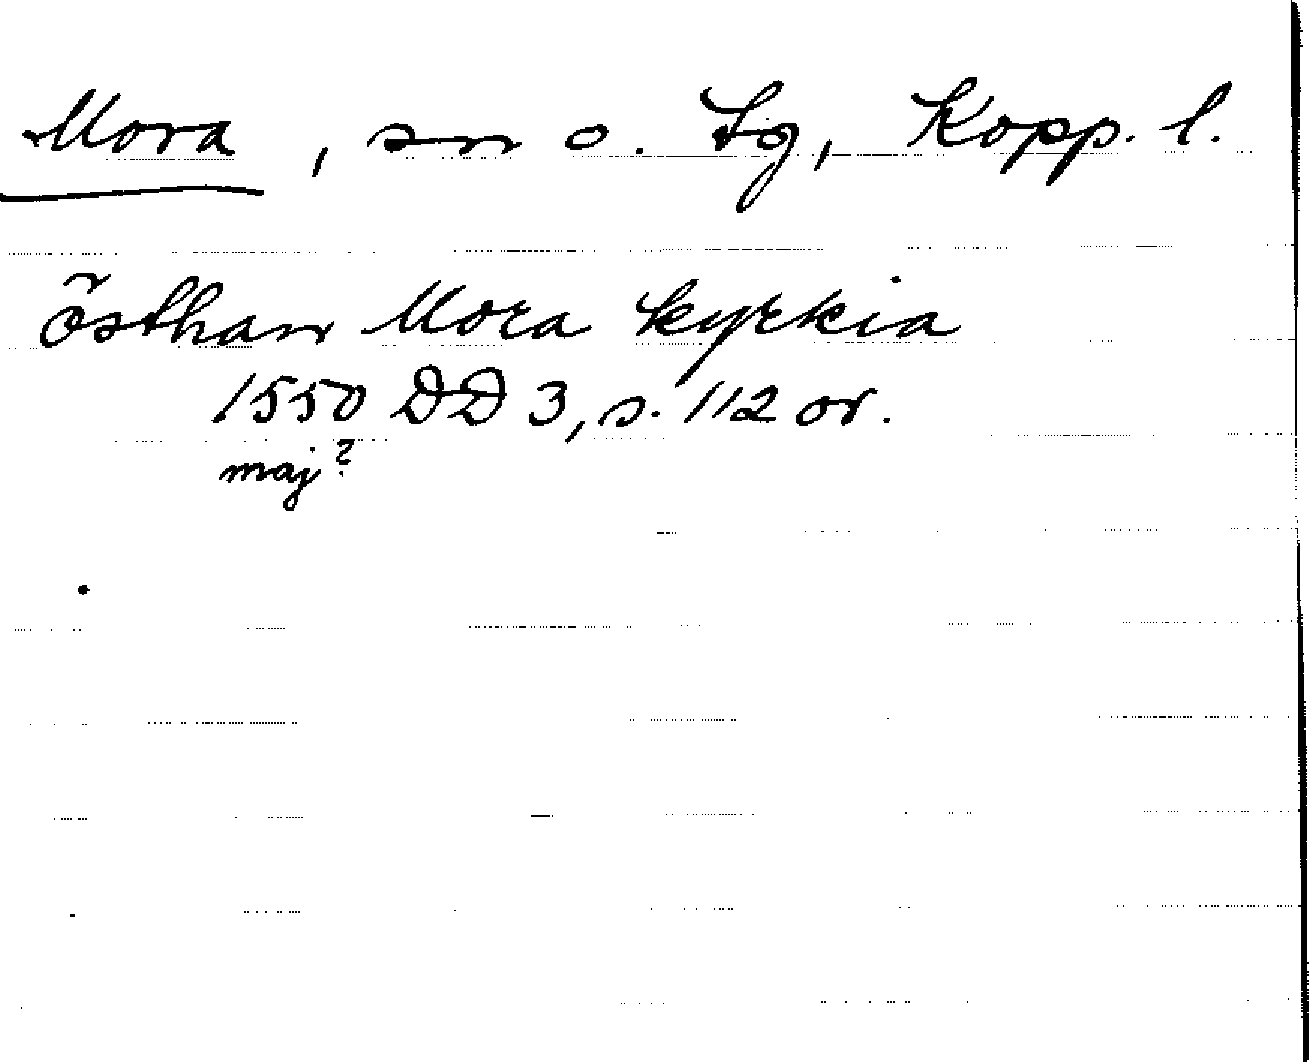 Mora, sn o. tg, Kopp. l.
östhan Mora kyrkia
1550 DD 3, s. 112 or.
maj?